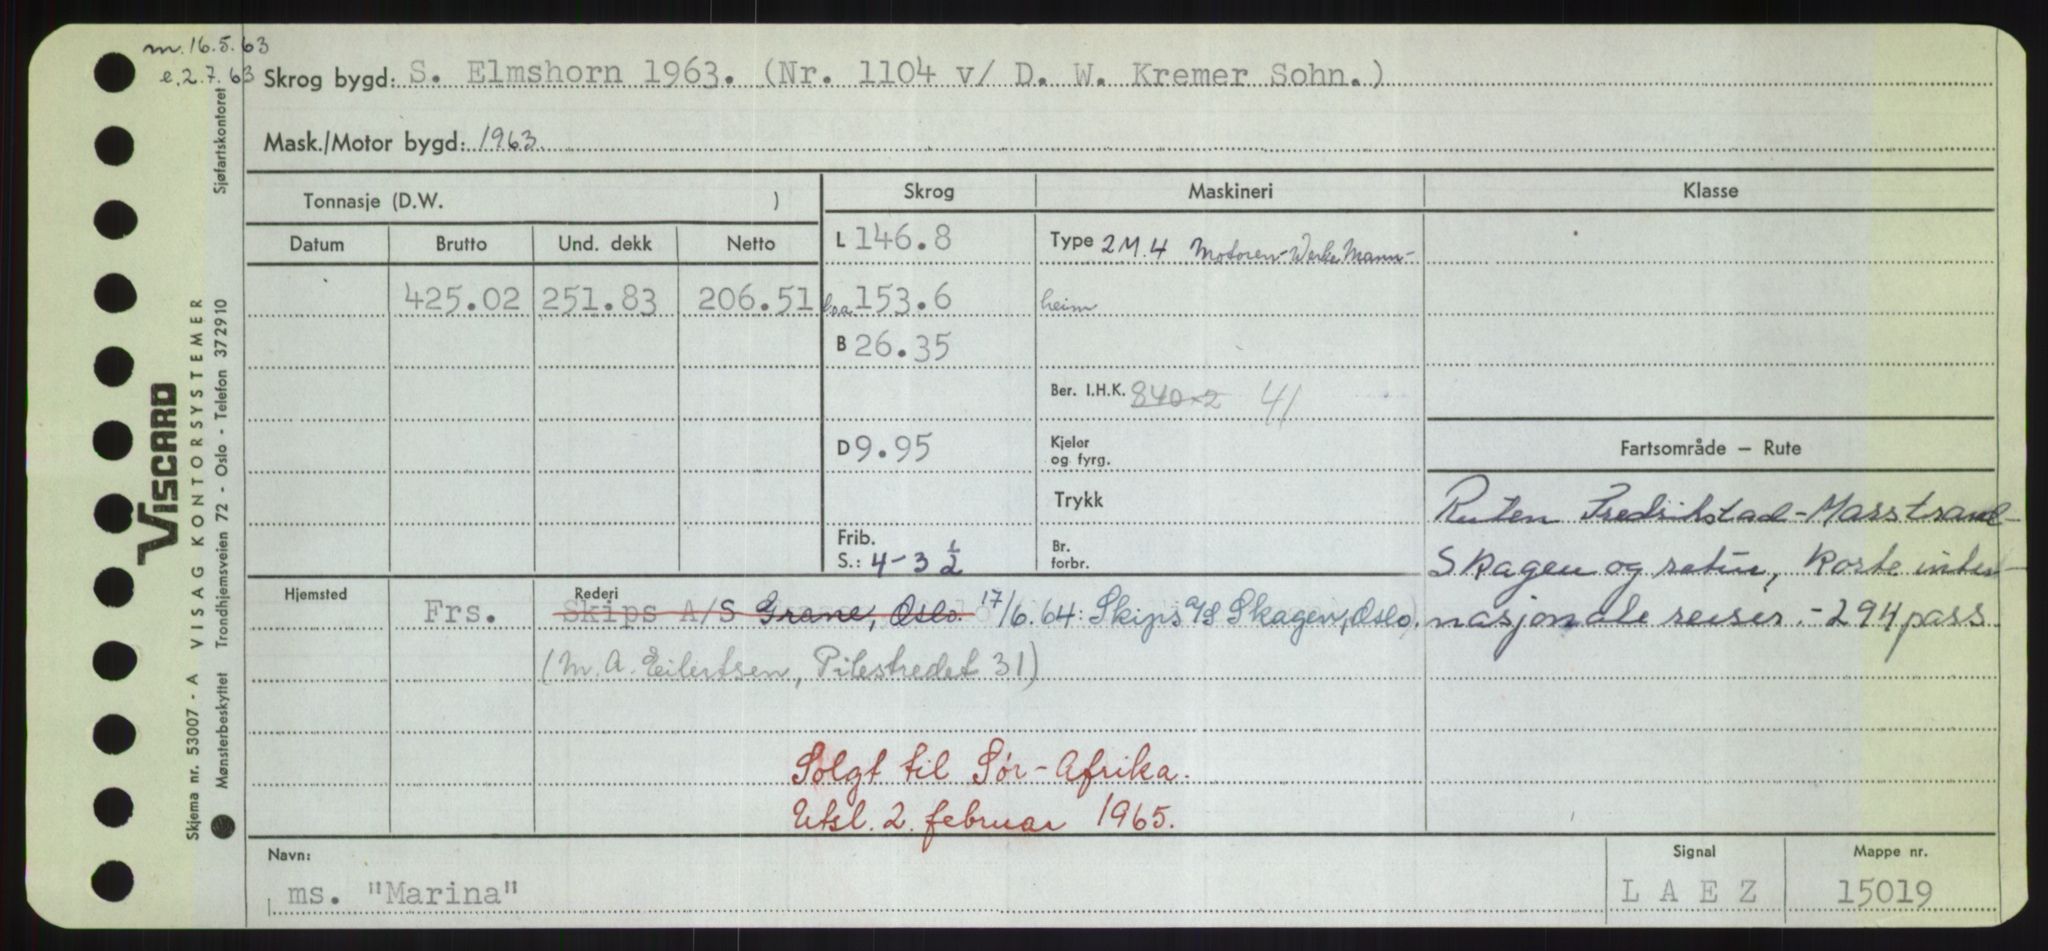 m. 16.5.63
e. 2.7.63
Skrog bygd: S. Elmshorn 1963. (Nr. 1104 v/ D. W. Kremer Sohn.)
Mask./Motor bygd: 1963.
Tonnasje (D.W. ) Skrog Maskineri Klasse
Datum Brutto Und. dekk Netto L 146.8 Type 2 M. 4 Motoren-Werke Mann-
425.02 251.83 206.51 l.o.a. 153.6 heim
B 26.35
Ber. I.H.K. 840x2 41
D 9.95 Kjeler og fyrg. Fartsområde – Rute
Trykk Ruten Fredrikstad-Marstrand-
Frib. S.: 4-3 1/2 Br. forbr. Skagen og retur, korte inter-
Hjemsted Frs. Rederi Skips A/S Grane, Oslo. 17/6.64: Skips A/S Skagen, Oslo. nasjonale reiser. - 294 pass.
(M. A. Eilertsen, Pilestredet 31)
Solgt til Sør-Afrika.
Utsl. 2. februar 1965.
Navn: Signal Mappe nr.
ms. "Marina" L A E Z 15019
VISCARD
Skjema nr. 53007 - A VISAG KONTORSYSTEMER
Mønsterbeskyttet Trondhjemsveien 72 - Oslo - Telefon 372910 Sjøfartskontoret